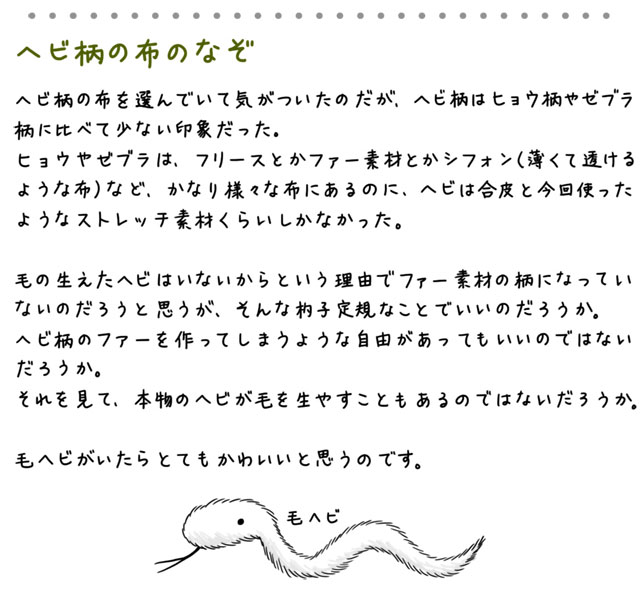 ヘビ柄の布のなぞ
ヘビ柄の布を選んでいて気がついたのだが、ヘビ柄はヒョウ柄やゼブラ
柄に比べて少ない印象だった。
ヒョウやゼブラは、フリースとかファー素材とかシフォン(薄くて透ける
ような布)など、かなり様々な布にあるのに、ヘビは合皮と今回使った
ようなストレッチ素材くらいしかなかった。
毛の生えたヘビはいないからという理由でファー素材の柄になってい
ないのだろうと思うが、そんな杓子定規なことでいいのだろうか。
ヘビ柄のファーを作ってしまうような自由があってもいいのではない
だろうか。
それを見て、本物のヘビが毛を生やすこともあるのではないだろうか。
毛ヘビがいたらとてもかわいいと思うのです。
毛ヘビ